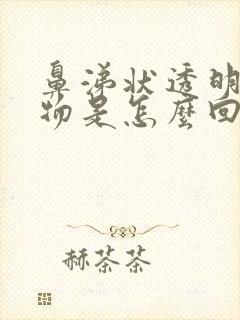 鼻涕状透明
物是怎麼回
赫茶茶